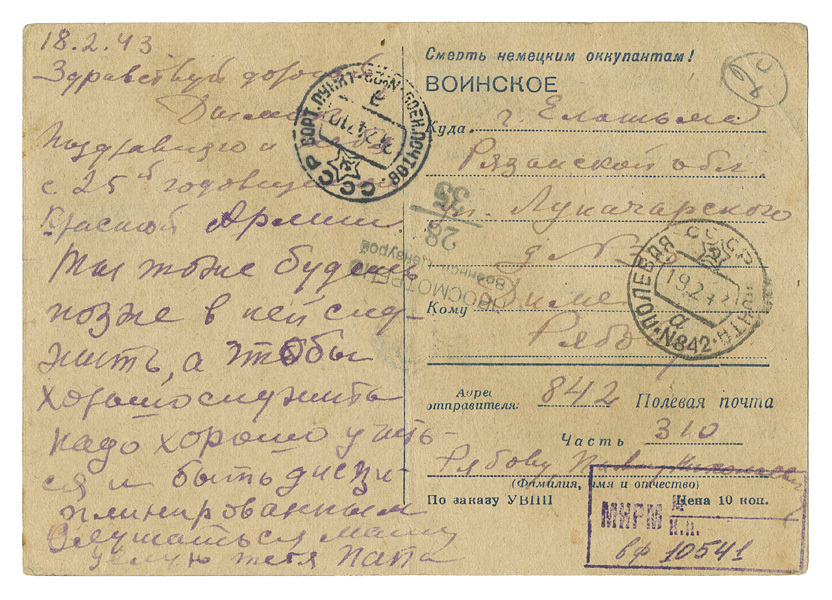 18.2.43
Здравствуй дорогой
Поздравляю
с 25й годовщиной
Красной Армии
Ты тоже будешь
позже в ней слу-
жить, а чтобы
хорошо служить
надо хорошо учить-
ся и быть дисци-
плинированным
Слушаться маму
целую тебя папа
Смерть немецким оккупантам!
ВОИНСКОЕ
Куда г. Елатьма
Рязанской обл.
ул. Луначарского
д №
Кому Диме
Рябову
Адрес
отправителя: 842 Полевая почта
Часть 310
Рябову
(Фамилия, имя и отчество)
По заказу УВПП Цена 10 коп.
СССР
28
35
ПРОСМОТРЕНО
Военной Цензурой
ПОЛЕВАЯ ПОЧТА №842
СССР
19.2.43
а
МИРМ
И.П.
вф 10541